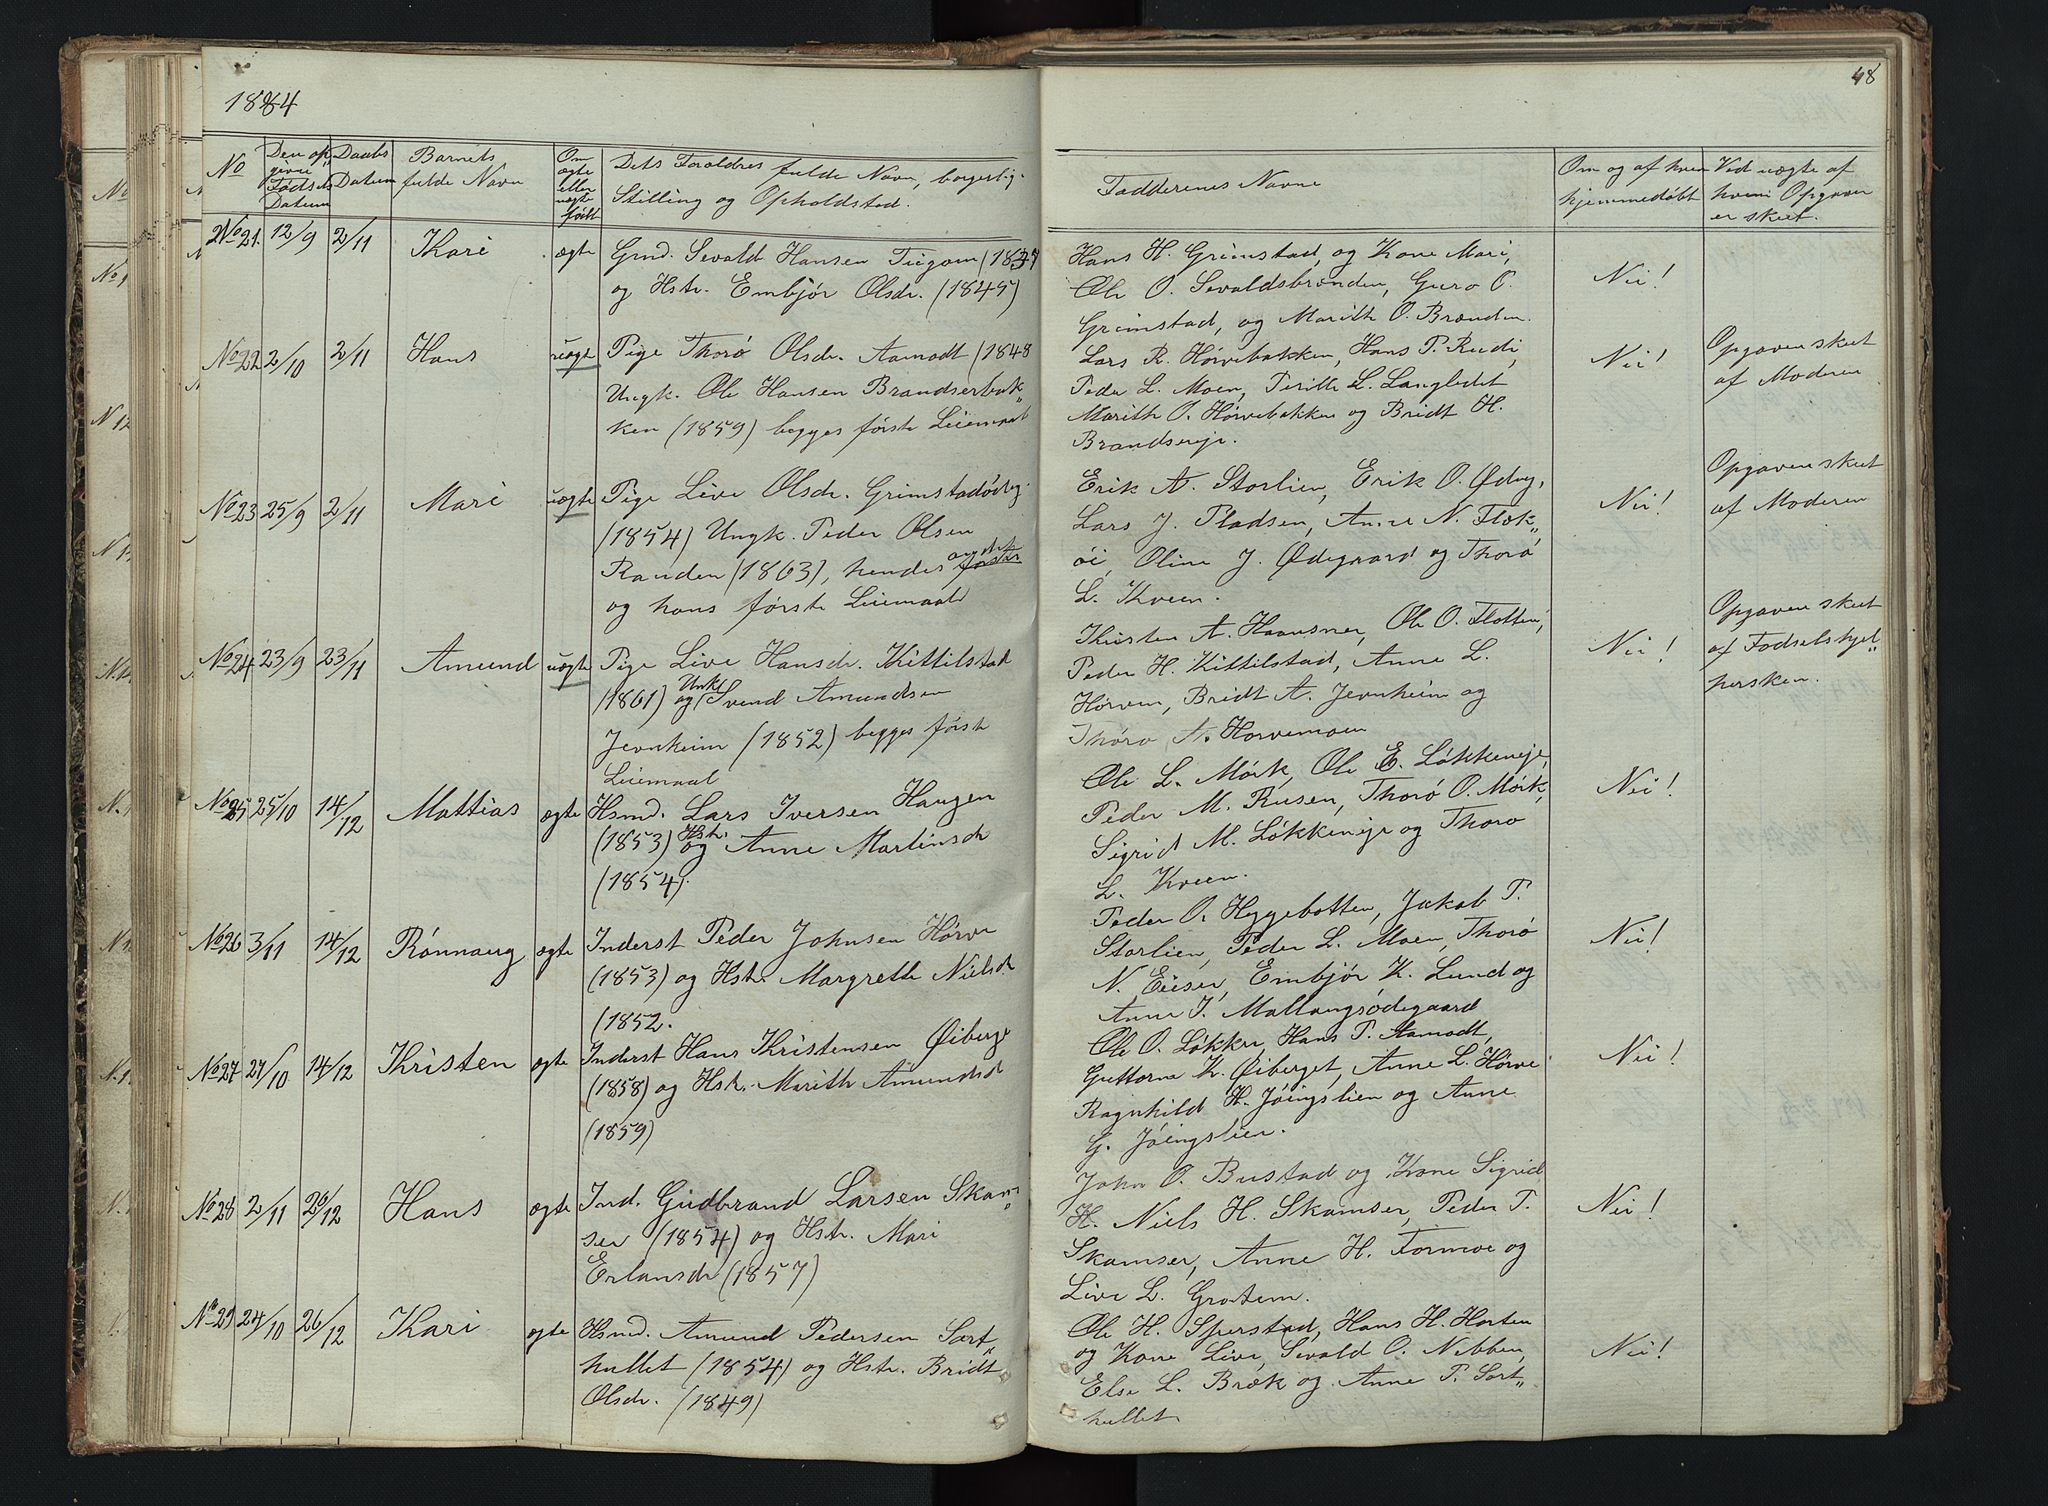 1884
48
No
Den op-
givne
Fødsels
Datum
Daabs
Datum
Barnets
fulde Navn
Om
ægte
eller
uægte
født
Dets Forældres fulde Navn, borgerlig
Stilling og Opholdstad.
Fadderenes Navne
Om og af hvem
hjemmedøbt
Ved uægte af
hvem Opgaven
er skeet.
No 21. 12/9 2/11 Kari ægte
Grnd. Sevald Hansen
og Hstr. Embjør Olsdr. (1845)
Hans H. Grimstad, og Kone Mari,
Ole O. Sevaldsbrænden, Guro O.
Grimstad, og Marith O. Brænden.
Nei!
No 22 2/10 2/11 Hans uægte
Pige Thorø Olsdr. Aamodt (1848
Ungk. Ole Hansen Brandserbak„
ken (1859) begges første Leiemaal
Lars R. Hørvebakken, Hans P. Rudi,
Peder L. Moen, Perith L. Langledet
Marith O. Hørvebakken og Bridt H.
Brandseeje.
Nei!
Opgaven skeet
af Moderen
No 23 25/9 2/11 Mari uægte
Pige Live Olsdr. Grimstadødeg.
(1854) Ungk. Peder Olsen
Randen (1863), hendes andet
og hans første Leiemaal
Erik A. Storlien, Erik O. Ødeg,
Lars J. Pladsen, Anne N. Flek„
øi, Oline J. Ødegaard og Thorø
L. Kveen.
Nei!
Opgaven skeet
af Moderen
No 24 23/9 23/11 Amund uægte
Pige Live Hansdr. Kittilstad
(1861) og Unkl Svend Amundsen
Jernheim (1852) begges først
Leiemaal
Kristen A. Haansner, Ole O. Flotten,
Peder H. Kittilstad, Anne L.
Hørven, Bridt A. Jernheim og
Thøro A. Hørvemoen
Nei!
Opgaven skeet
af Fødselshjel„
persken.
No 25 25/10 14/12 Mattias ægte
Hsmd. Lars Iversen Haugen
(1853) og Hstr. Anne Martinsdr
(1854).
Ole L. Mørk, Ole E. Løkkeneje,
Peder M. Rusen, Thorø O. Mørk,
Sigrid M. Løkkeneje og Thorø
L. Kveen.
Nei!
No 26 3/11 14/12 Rønnaug ægte
Inderst Peder Johnsen Hørve
(1853) og Hstr. Margrethe Nielsdr
(1852.
Peder O. Hyggebotten, Jakob P.
Storlien, Peder L. Moen, Thorø
N. Eieser, Embjør K. Lund og
Anne I. Mallangsødegaard
Nei!
No 27 27/10 14/12 Kristen ægte
Inderst Hans Kristensen Øiberge
(1858) og Hstr. Marith Amundsd
(1859)
Ole O. Løkker, Hans P. Aamodt,
Guttorm K. Øiberget, Anne L. Hørve
Ragnhild H. Jøingslien og Anne
G. Jøingslien.
Nei!
No 28 2/11 26/12 Hans ægte
Ind. Gudbrand Larsen Skam„
ser (1854) og Hstr. Mari
Erlansdr (1857)
John O. Bustad og Kone Sigrid
H. Niels H. Skamser, Peder P.
Skamser, Anne H. Formoe og
Live L. Grotem.
Nei!
No 29 24/10 26/12 Kari ægte
Hsmd. Amund Pedersen Sort„
hullet (1854) og Hstr. Bridt
Olsdr. (1849)
Ole H. Sperstad, Hans H. Horten
og Kone Live, Sevald O. Nebben,
Else L. Bræk og Anne P. Sort„
hullet
Nei!